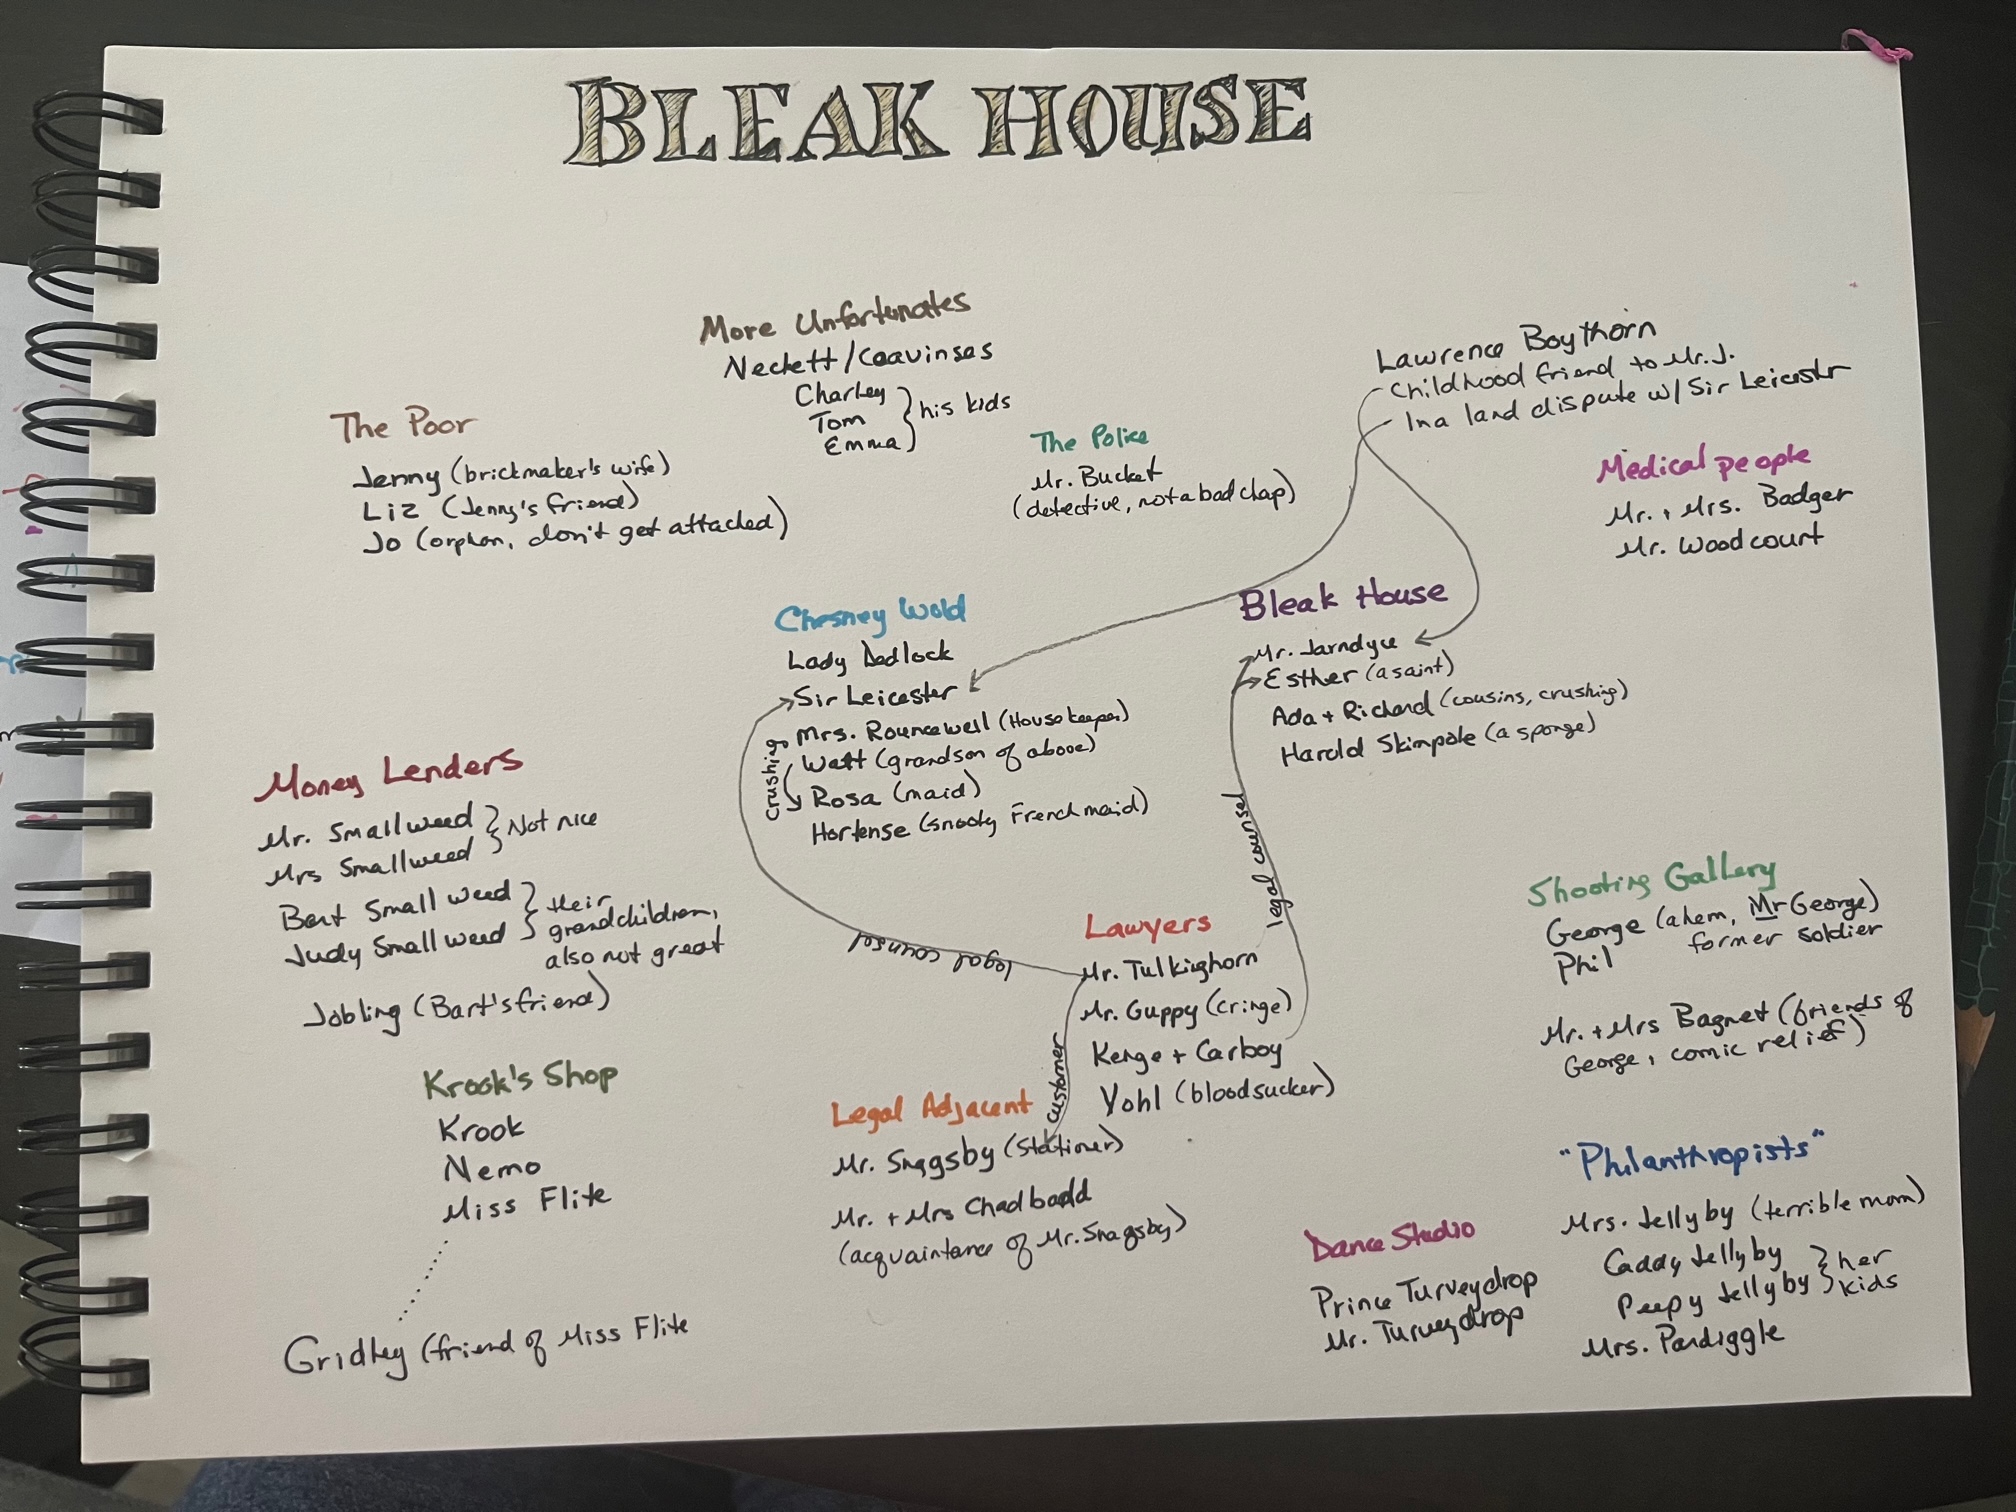 BLEAK HOUSE
More Unfortunates
Neckett/Coavinses
Charley
Tom
Emma
his kids
Lawrence Boythorn
Childhood friend to Mr. J.
In a land dispute w/ Sir Leicester
The Poor
Jenny (brickmaker's wife)
Liz (Jenny's friend)
Jo (orphan, don't get attached)
The Police
Mr. Bucket
(detective, not a bad chap)
Medical people
Mr. + Mrs. Badger
Mr. Woodcourt
Chesney Wold
Lady Dedlock
Sir Leicester
Mrs. Rouncewell (Housekeeper)
Watt (grandson of above)
Rosa (maid)
Hortense (snooty French maid)
crushing
legal counsel
Bleak House
Mr. Jarndyce
Esther (a saint)
Ada + Richard (cousins, crushing)
Harold Skimpole (a sponge)
legal counsel
Money Lenders
Mr. Smallweed
Mrs Smallweed
Not nice
Bart Smallweed
Judy Smallweed
their
grandchildren,
also not great
Jobling (Bart's friend)
Lawyers
Mr. Tulkinghorn
Mr. Guppy (cringe)
Kenge + Carboy
Vohl (bloodsucker)
customer
Shooting Gallery
George (ahem, Mr George)
former soldier
Phil
Mr. + Mrs Bagnet (friends of
George, comic relief)
Krook's Shop
Krook
Nemo
Miss Flite
Gridley (friend of Miss Flite
Legal Adjacent
Mr. Snagsby (stationer)
Mr. + Mrs Chadbadd
(acquaintance of Mr. Snagsby)
Dance Studio
Prince Turveydrop
Mr. Turveydrop
"Philanthropists"
Mrs. Jellyby (terrible mom)
Caddy Jellyby
Peepy Jellyby
her
kids
Mrs. Pardiggle